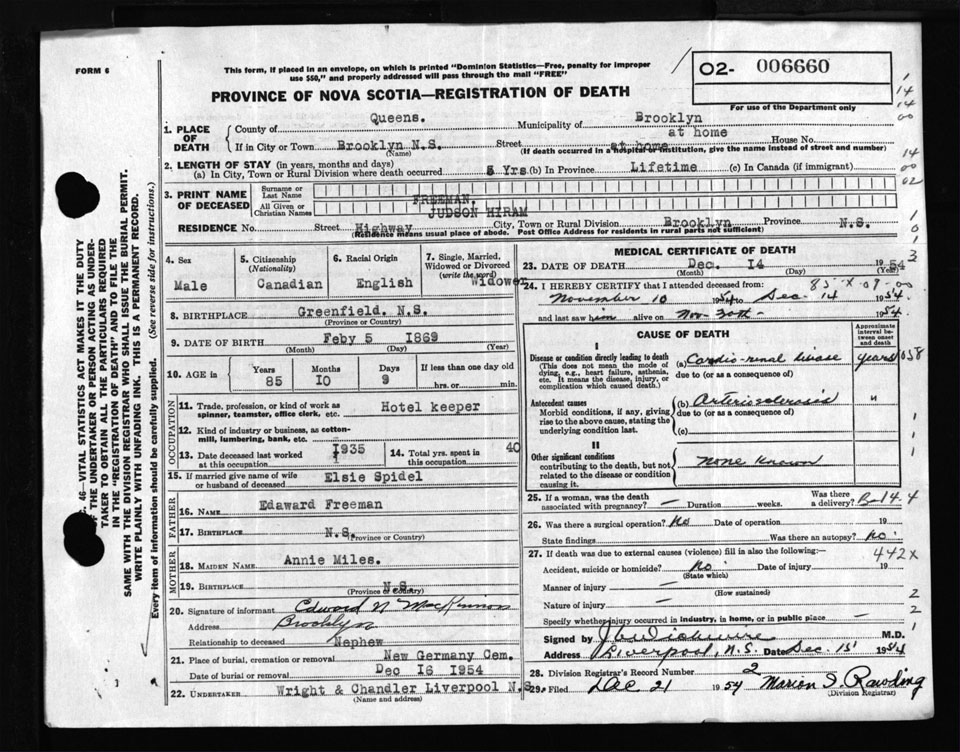 FORM 6
This form, if placed in an envelope, on which is printed "Dominion Statistics—Free, penalty for improper
use $50," and properly addressed will pass through the mail "FREE"
02- 006660
For use of the Department only
PROVINCE OF NOVA SCOTIA—REGISTRATION OF DEATH
1. PLACE OF DEATH
County of Queens. Municipality of Brooklyn
If in City or Town Brooklyn N.S. Street at home House No.
(Name) (If death occurred in a hospital or institution, give the name instead of street and number)
at home
2. LENGTH OF STAY (in years, months and days)
(a) In City, Town or Rural Division where death occurred 5 Yrs (b) In Province Lifetime (c) In Canada (if immigrant)
3. PRINT NAME OF DECEASED
Surname or Last Name FREEMAN,
All Given or Christian Names JUDSON HIRAM
RESIDENCE No. Street Highway City, Town or Rural Division Brooklyn Province N.S.
(Residence means usual place of abode. Post Office Address for residents in rural parts not sufficient)
4. Sex
Male
5. Citizenship
(Nationality)
Canadian
6. Racial Origin
English
7. Single, Married, Widowed or Divorced
(write the word)
Widower
8. BIRTHPLACE Greenfield, N.S.
(Province or Country)
9. DATE OF BIRTH Feby 5 1869
(Month) (Day) (Year)
10. AGE in Years Months Days If less than one day old
85 10 9 hrs. or min.
OCCUPATION
11. Trade, profession, or kind of work as spinner, teamster, office clerk, etc. Hotel keeper
12. Kind of industry or business, as cotton-mill, lumbering, bank, etc.
13. Date deceased last worked at this occupation 1935
14. Total yrs. spent in this occupation 40
15. If married give name of wife or husband of deceased Elsie Spidel
FATHER
16. NAME Edaward Freeman
17. BIRTHPLACE N.S.
(Province or Country)
MOTHER
18. MAIDEN NAME Annie Miles.
19. BIRTHPLACE N.S.
(Province or Country)
20. Signature of informant Edward N MacKinnon
Address Brooklyn
Relationship to deceased Nephew
21. Place of burial, cremation or removal New Germany Cem.
Date of burial or removal Dec 16 1954
22. UNDERTAKER Wright & Chandler Liverpool N.S.
(Name and address)
MEDICAL CERTIFICATE OF DEATH
23. DATE OF DEATH Dec. 14 1954
(Month) (Day) (Year)
24. I HEREBY CERTIFY that I attended deceased from:
November 10 1954 to Dec-14 1954.
and last saw him alive on Nov-30th- 1954.
CAUSE OF DEATH
Approximate interval between onset and death
I
Disease or condition directly leading to death (a) Cardio-renal disease years
(This does not mean the mode of dying, e.g., heart failure, asthenia, etc. It means the disease, injury, or complication which caused death.)
due to (or as a consequence of)
Antecedent causes (b) Arteriosclerosis "
Morbid conditions, if any, giving rise to the above cause, stating the underlying condition last.
due to (or as a consequence of)
(c)
II
Other significant conditions None known
contributing to the death, but not related to the disease or condition causing it.
25. If a woman, was the death associated with pregnancy? — Duration weeks. Was there a delivery?
B-14.4
26. Was there a surgical operation? No Date of operation 19
State findings Was there an autopsy? No
27. If death was due to external causes (violence) fill in also the following:—
442X
Accident, suicide or homicide? No Date of injury 19
(State which)
Manner of injury —
(How sustained)
Nature of injury —
Specify whether injury occurred in industry, in home, or in public place —
Signed by M.D.
Address Liverpool, N.S. Date Dec. 15 1954
28. Division Registrar's Record Number 2
29. Filed Dec 21 1954 Marion S. Rawding
(Division Registrar)
46—VITAL STATISTICS ACT MAKES IT THE DUTY
OF THE UNDERTAKER OR PERSON ACTING AS UNDER-
TAKER TO OBTAIN ALL THE PARTICULARS REQUIRED
IN THE "REGISTRATION OF DEATH" AND TO FILE THE
SAME WITH THE DIVISION REGISTRAR WHO SHALL ISSUE THE BURIAL PERMIT.
WRITE PLAINLY WITH UNFADING INK. THIS IS A PERMANENT RECORD.
Every item of information should be carefully supplied. (See reverse side for instructions.)